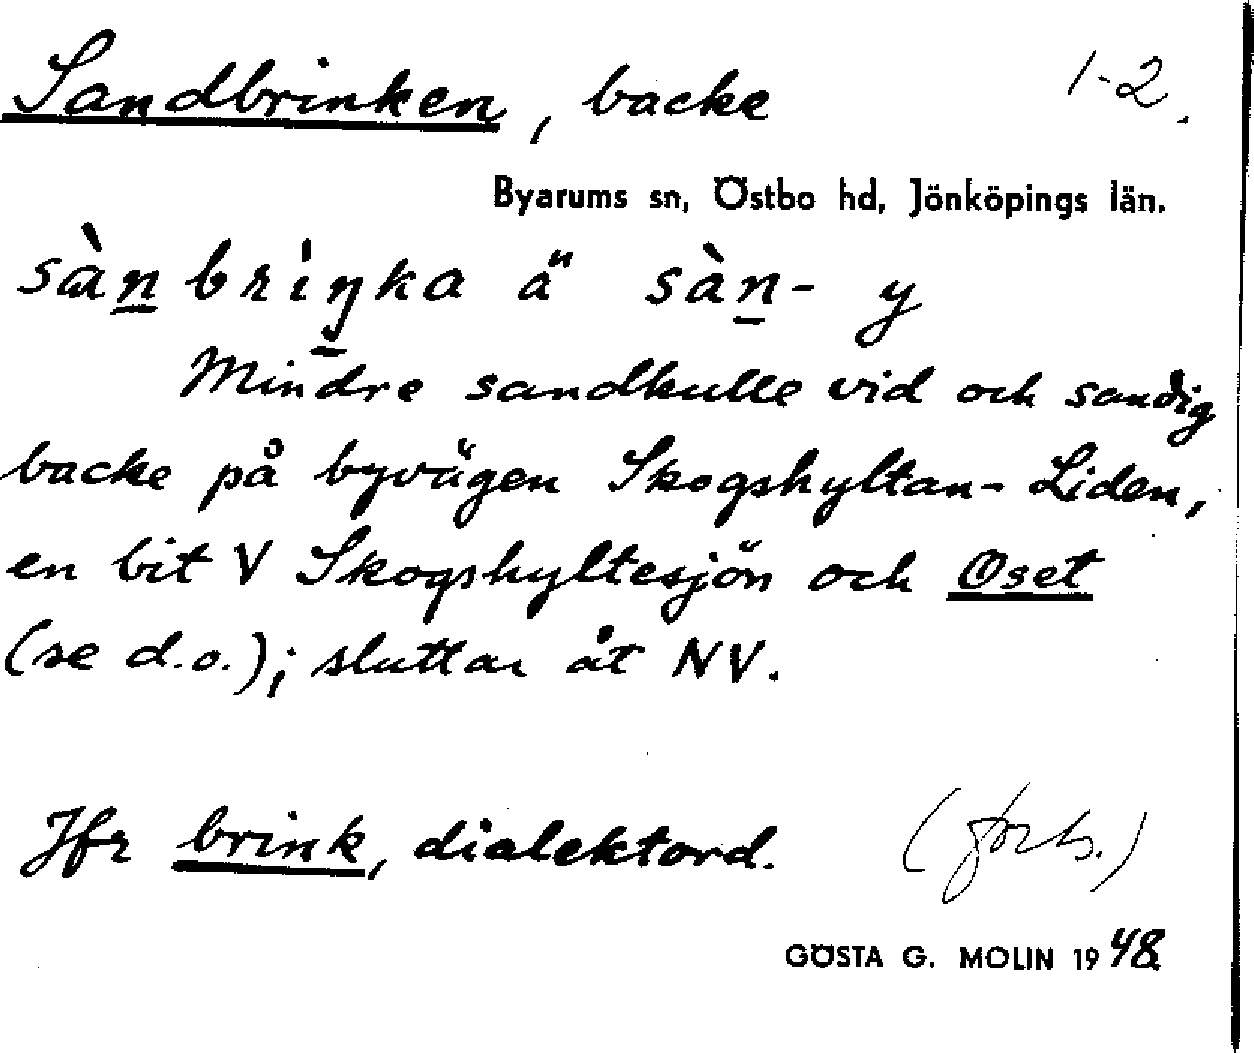 Sandbrinken, backe 1-2.
Byarums sn, Östbo hd, Jönköpings län.
sàn brìŋka ä sàn- y
Mindre sandkulle vid och sandig
backe på byvägen Skogshyltan-Liden,
en bit V Skogshyltesjön och Oset
(se d.o.); sluttar åt NV.
Jfr brink, dialektord. (forts.)
GÖSTA G. MOLIN 1948